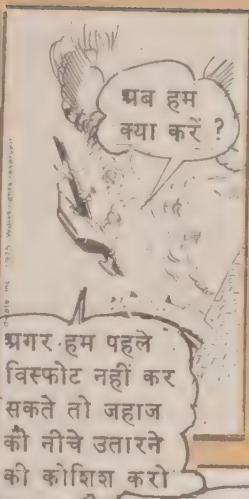 अब हम
क्या करें ?
अगर हम पहले
विस्फोट नहीं कर
सकते तो जहाज
को नीचे उतारने
की कोशिश करो